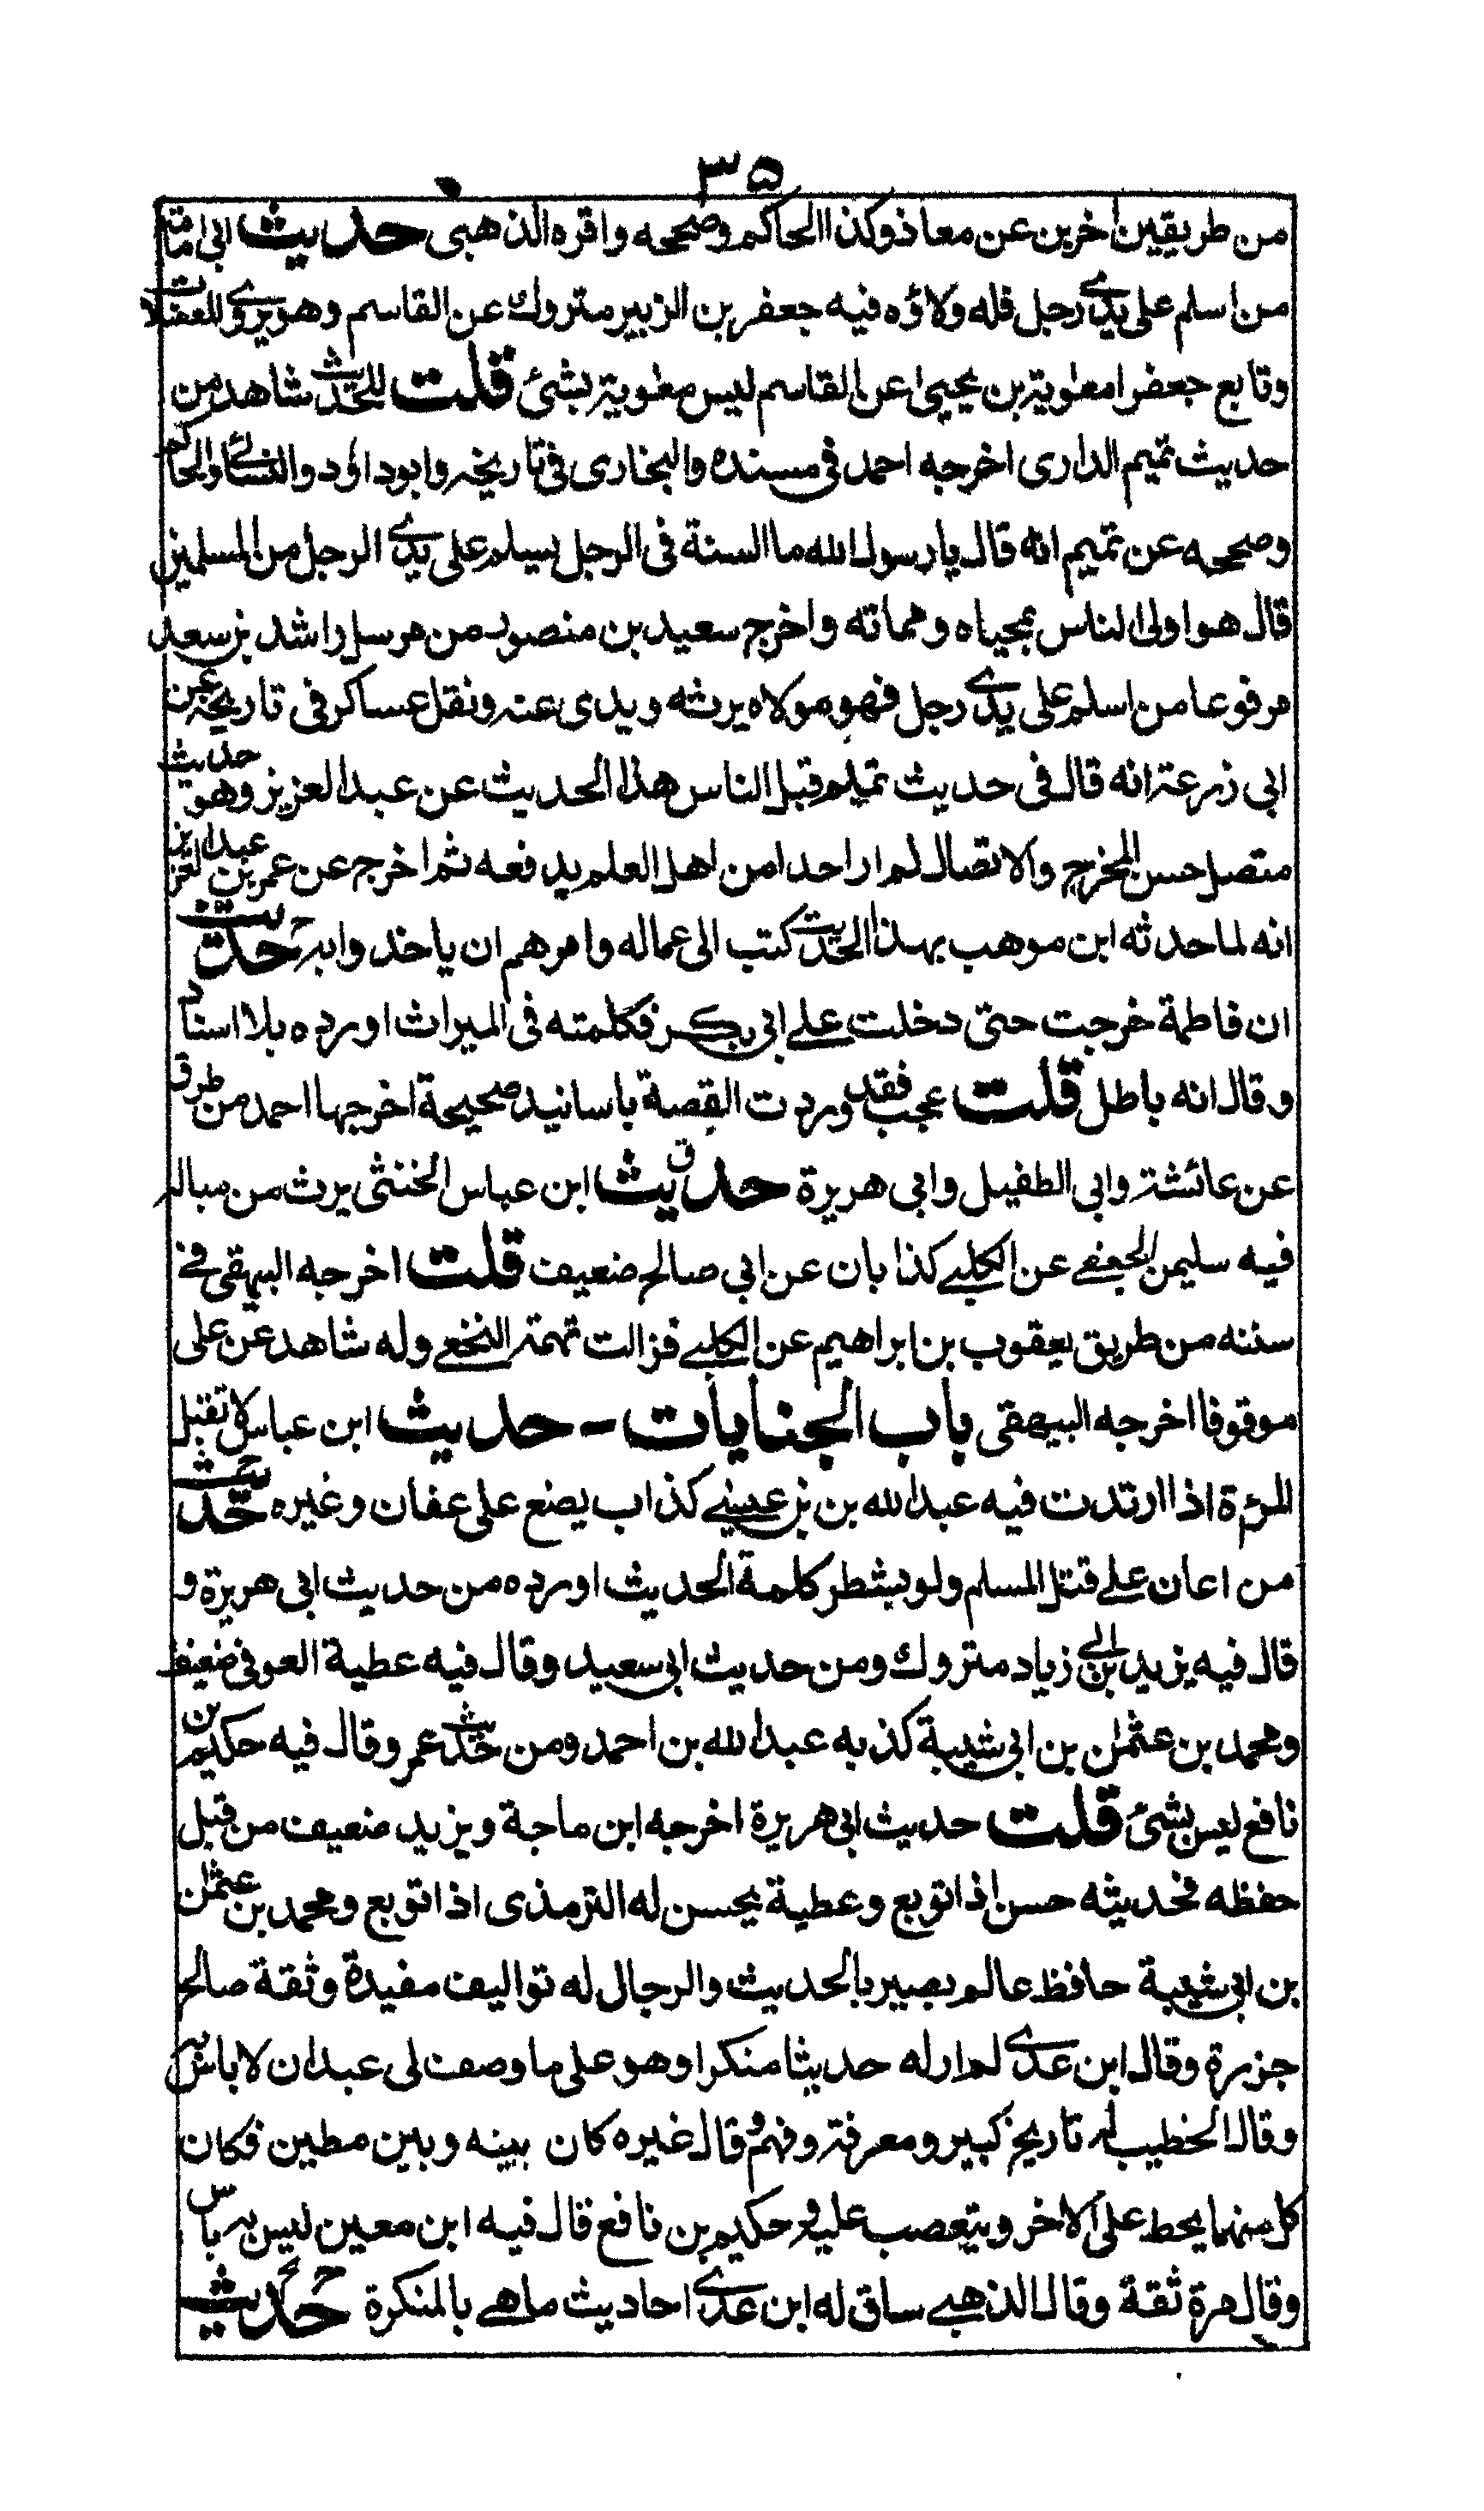 ٣٥
من طريقين اخرين عن معاذ وكذا الحاكم وصححه واقره الذهبى حديث ابى امامة
من اسلم على يدى رجل فله ولاؤه فيه جعفر بن الزبير متروك عن القاسم وهو يروى المعضلات
وتابع جعفرا معٰوية بن يحيىٰ عن القاسم ليس معٰوية بشئ قلت للحديث شاهد من
حديث تميم الدارى اخرجه احمد فى مسنده والبخارى فى تاريخه وابو داؤد والنسائى والحاكم
وصححه عن تميم انه قال يارسول الله ما السنة فى الرجل يسلم على يدى الرجل من المسلمين
قال هو اولى الناس بمحياه ومماته واخرج سعيد بن منصور من مرسل راشد بن سعد
مرفوعا من اسلم على يدى رجل فهو مولاه يرثه ويدى عنه ونقل عساكر فى تاريخه عن
ابى زرعة انه قال فى حديث تميم قبل الناس هذا الحديث عن عبد العزيز وهو حديث
متصل حسن المخرج والاتصال لم ار احدا من اهل العلم يدفعه ثم اخرج عن عمر بن عبد العزيز
انه لما حدثه ابن موهب بهذا الحديث كتب الى عماله وامرهم ان ياخذوا به حديث
ان فاطمة خرجت حتى دخلت على ابى بكر فكلمته فى الميراث اورده بلا اسناد
وقال انه باطل قلت عجب فقد وردت القصة باسانيد صحيحة اخرجها احمد من طرق
عن عائشة وابى الطفيل وابى هريرة حديث ابن عباس الخنثى يرث من مباله
فيه سليمن الجعفى عن الكلبى كذابان عن ابى صالح ضعيف قلت اخرجه البيهقى فى
سننه من طريق يعقوب بن ابراهيم عن الكلبى فزالت تهمة النخعى وله شاهد عن على
موقوفا اخرجه البيهقى باب الجنايات - حديث ابن عباس لا تقبل
المرءة اذا ارتدت فيه عبد الله بن عيسى كذاب يضع على عفان وغيره حديث
من اعان على قتل المسلم ولو بشطر كلمة الحديث اورده من حديث ابى هريرة و
قال فيه يزيد بن ابى زياد متروك ومن حديث ابى سعيد وقال فيه عطية العوفى ضعيف
ومحمد بن عثمٰن بن ابى شيبة كذبه عبد الله بن احمد ومن حديث عمر وقال فيه حكيم بن
نافع ليس بشئ قلت حديث ابى هريرة اخرجه ابن ماجة ويزيد ضعيف من قبل
حفظه فحديثه حسن اذا توبع وعطية يحسن له الترمذى اذا توبع ومحمد بن عثمٰن
بن ابى شيبة حافظ عالم بصير بالحديث والرجال له تواليف مفيدة وثقة صالح
جزرة وقال ابن عدى لم ار له حديثا منكرا وهو على ما وصف لى عبدان لا باس به
وقال الخطيب له تاريخ كبير ومعرفة وفهم وقال غيره كان بينه وبين مطين فكان
كل منهما يحط على الاخر ويتعصب عليه وحكيم بن نافع قال فيه ابن معين ليس به باس
وقال مرة ثقة وقال الذهبى ساق له ابن عدى احاديث ما هى بالمنكرة حديث